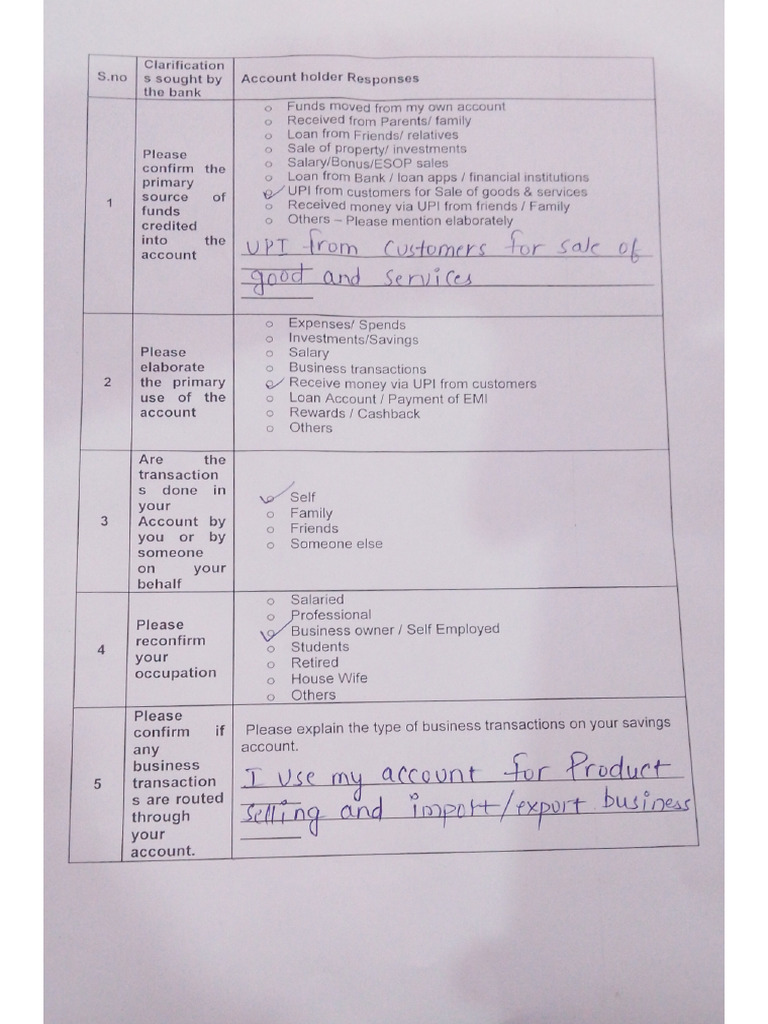 S.no
Clarification
s sought by
the bank
Account holder Responses
1
Please
confirm the
primary
source of
funds
credited
into the
account
o Funds moved from my own account
o Received from Parents/ family
o Loan from Friends/ relatives
o Sale of property/ investments
o Salary/Bonus/ESOP sales
o Loan from Bank / loan apps / financial institutions
o UPI from customers for Sale of goods & services
o Received money via UPI from friends / Family
o Others – Please mention elaborately
UPI from customers for sale of
good and services
2
Please
elaborate
the primary
use of the
account
o Expenses/ Spends
o Investments/Savings
o Salary
o Business transactions
o Receive money via UPI from customers
o Loan Account / Payment of EMI
o Rewards / Cashback
o Others
3
Are the
transaction
s done in
your
Account by
you or by
someone
on your
behalf
o Self
o Family
o Friends
o Someone else
4
Please
reconfirm
your
occupation
o Salaried
o Professional
o Business owner / Self Employed
o Students
o Retired
o House Wife
o Others
5
Please
confirm if
any
business
transaction
s are routed
through
your
account.
Please explain the type of business transactions on your savings
account.
I use my account for Product
selling and import/export business